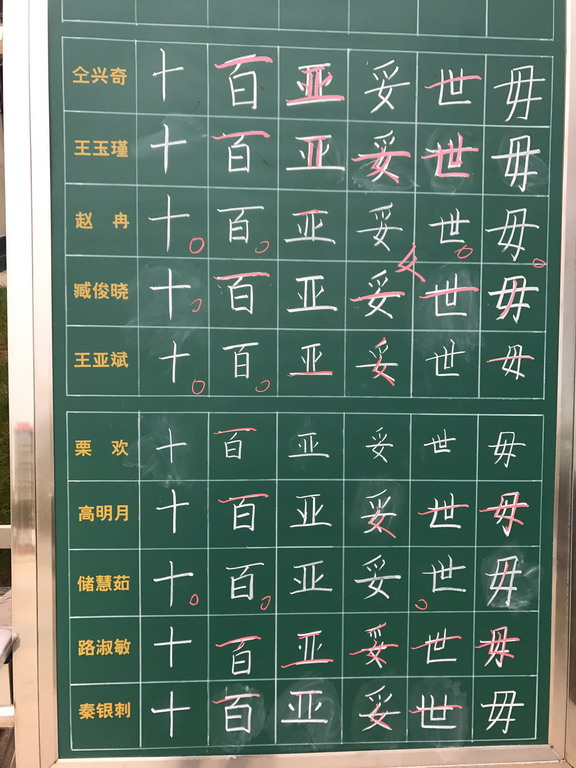 仝兴奇 十 百 亚 妥 世 毋
王玉瑾 十 百 亚 妥 世 毋
赵 冉 十 百 亚 妥 世 毋
臧俊晓 十 百 亚 妥 世 毋
王亚斌 十 百 亚 妥 世 毋
栗 欢 十 百 亚 妥 世 毋
高明月 十 百 亚 妥 世 毋
储慧茹 十 百 亚 妥 世 毋
路淑敏 十 百 亚 妥 世 毋
秦银刺 十 百 亚 妥 世 毋